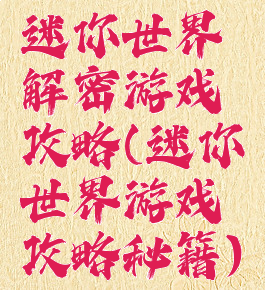 迷你世界
解密游戏
攻略(迷你
世界游戏
攻略秘籍)